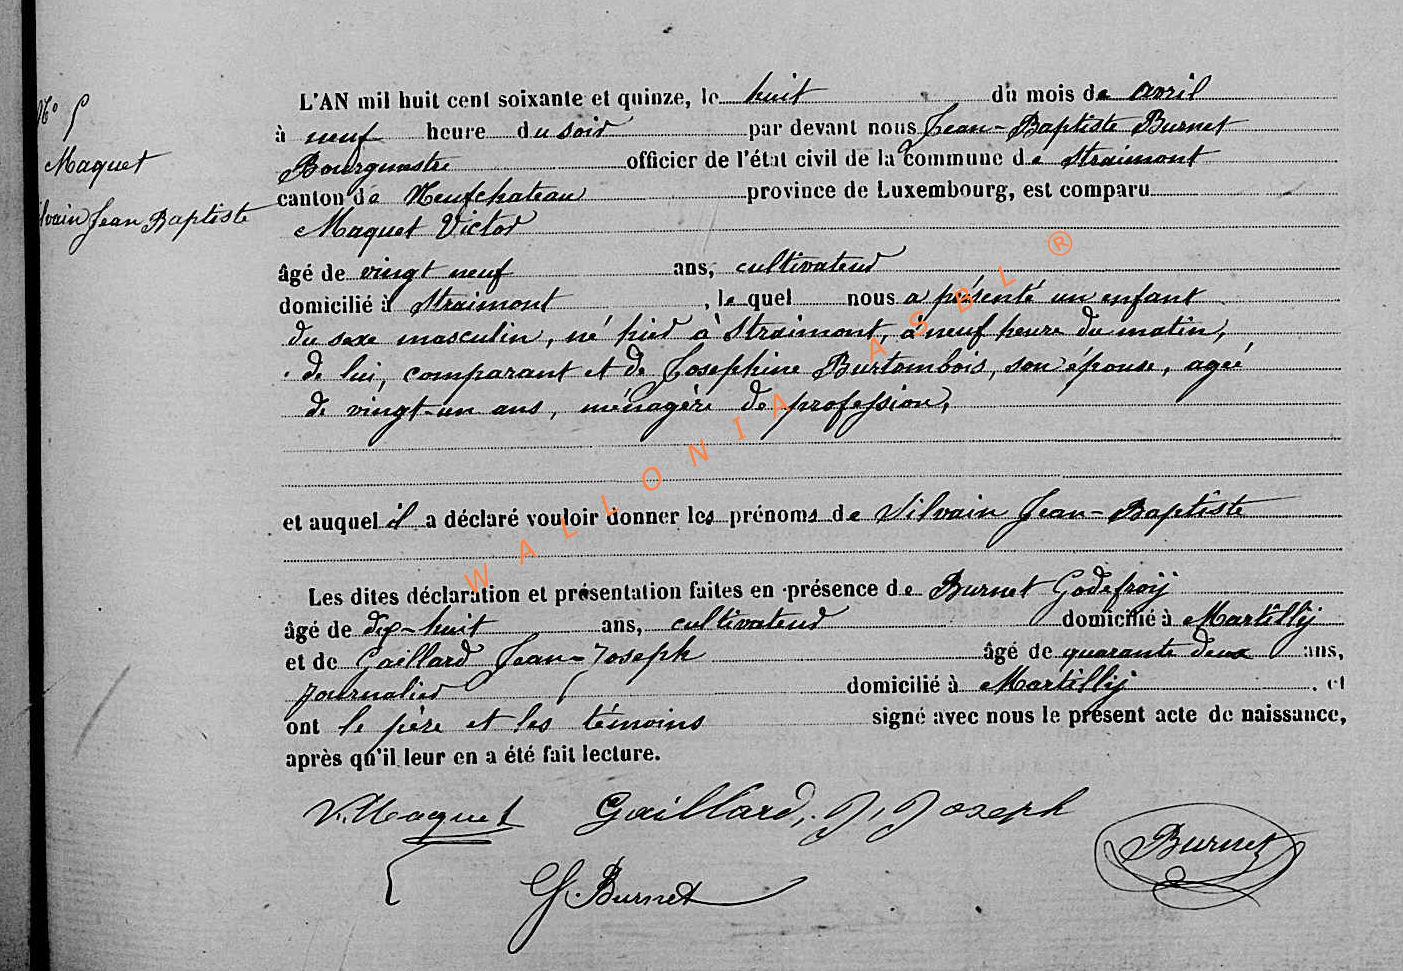 N° 5
Maquet
Silvain Jean Baptiste
L'AN mil huit cent soixante et quinze, le huit du mois de avril
à neuf heure du soir par devant nous Jean-Baptiste Burnet
Bourgmestre officier de l'état civil de la commune de Straimont
canton de Neufchateau province de Luxembourg, est comparu
Maquet Victor
âgé de vingt neuf ans, cultivateur
domicilié à Straimont, le quel nous a présenté un enfant
du sexe masculin, né hier à Straimont, à neuf heure du matin,
de lui, comparant et de Josephine Burtombois, son épouse, agée
de vingt-un ans, ménagère de profession,
et auquel il a déclaré vouloir donner les prénoms de Silvain Jean-Baptiste
Les dites déclaration et présentation faites en présence de Burnet Godefroij
âgé de dix-huit ans, cultivateur domicilié à Martillij
et de Gaillard Jean-Joseph âgé de quarante deux ans,
journalier domicilié à Martillij. et
ont le père et les témoins signé avec nous le présent acte de naissance,
après qu'il leur en a été fait lecture.
V. Maquet Gaillard, J, Joseph
Burnet
G. Burnet
WALLONIA ASBL ®